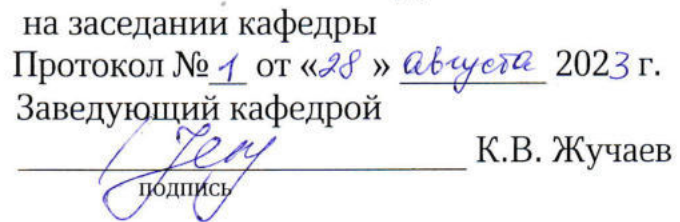 на заседании кафедры
Протокол № 1 от «28 » августа 2023 г.
Заведующий кафедрой
К.В. Жучаев
подпись